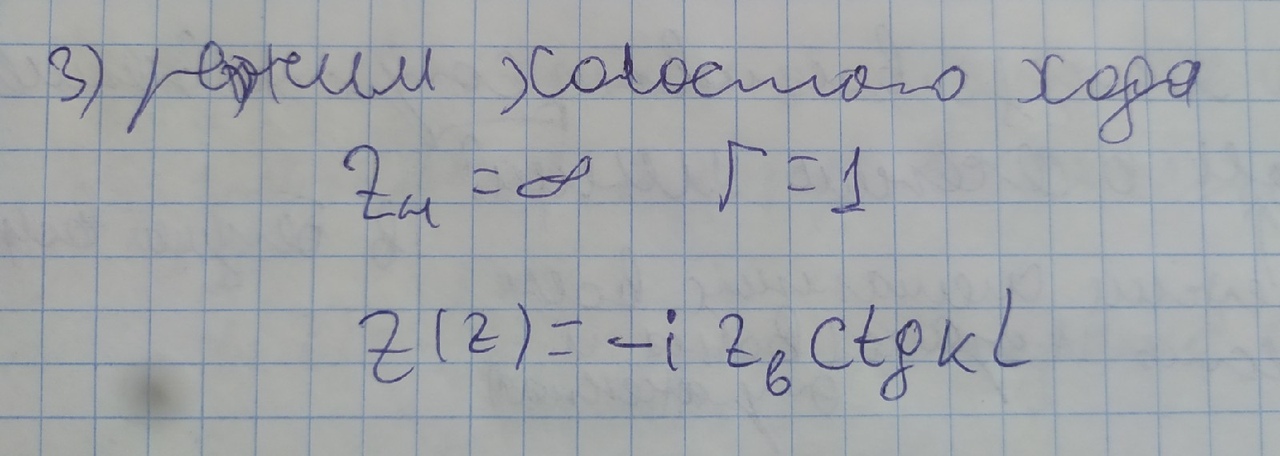 3) режим холостого хода
Zн = ∞ Г = 1
Z(z) = -i Zв ctg kL